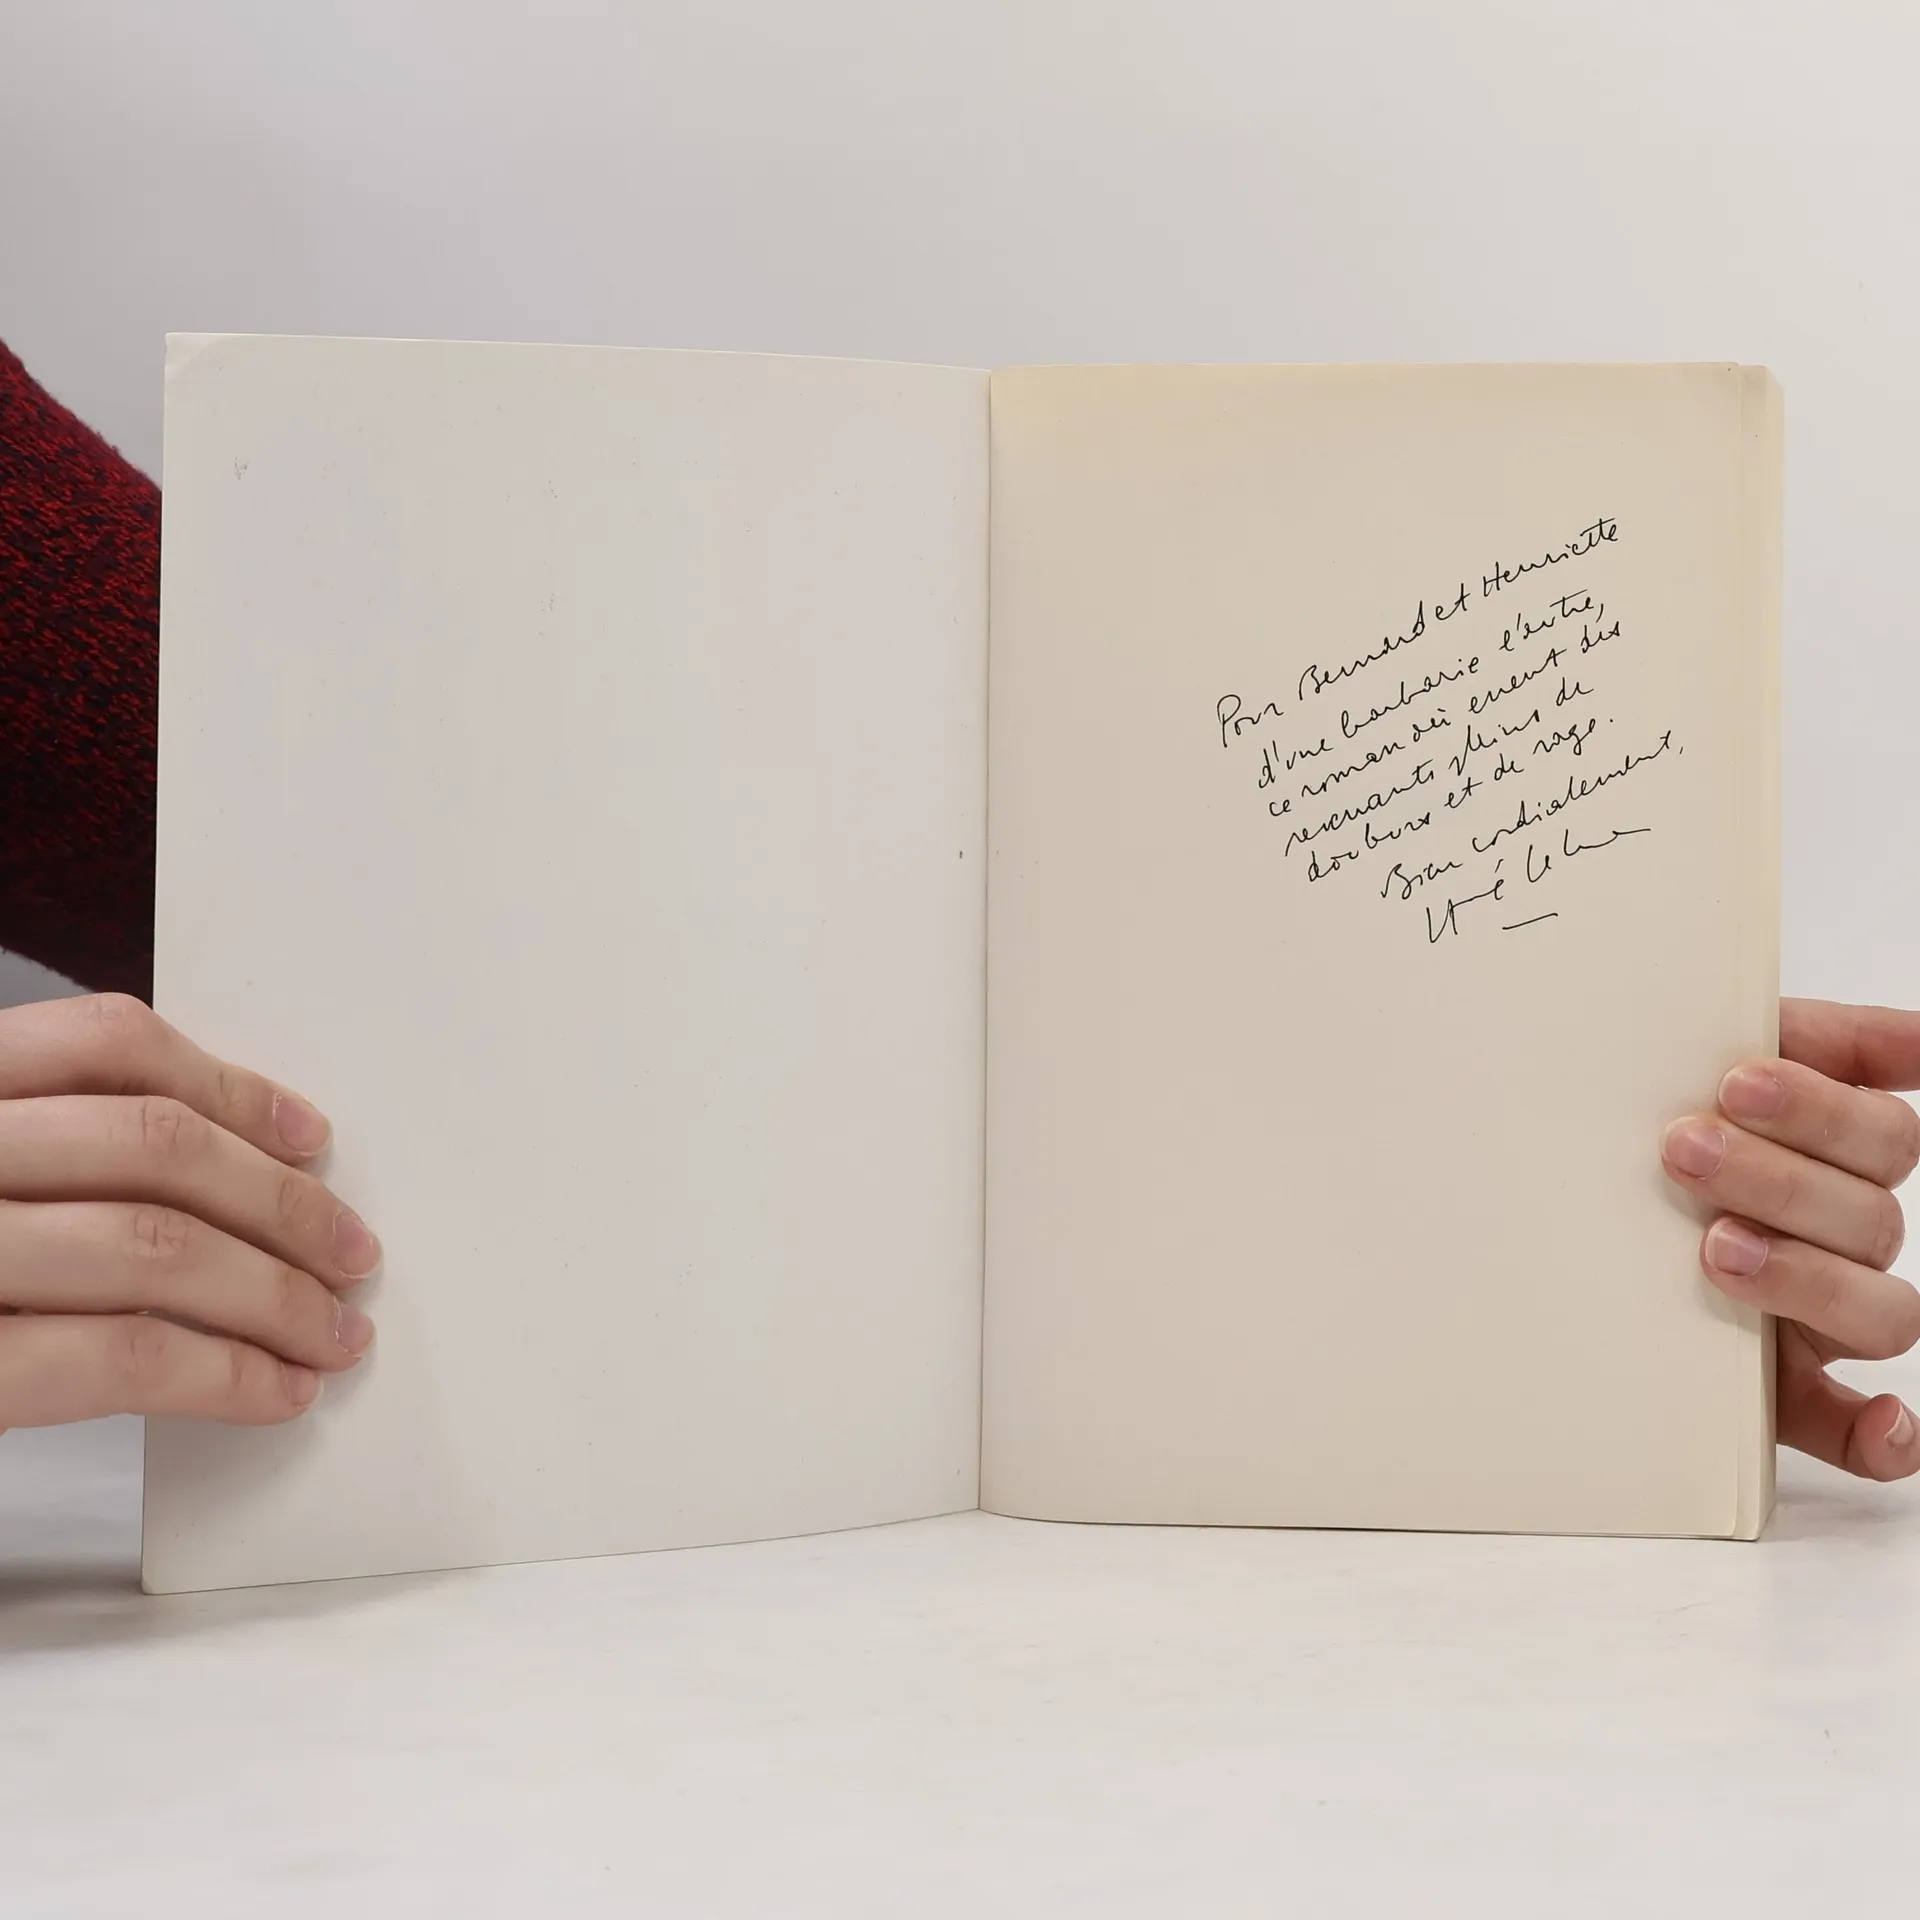 Pour Bernard et Henriette
d'une barbarie l'autre,
ce roman où errent des
revenants pleins de
douleurs et de rage.
Bien cordialement,
Hervé Le Corre